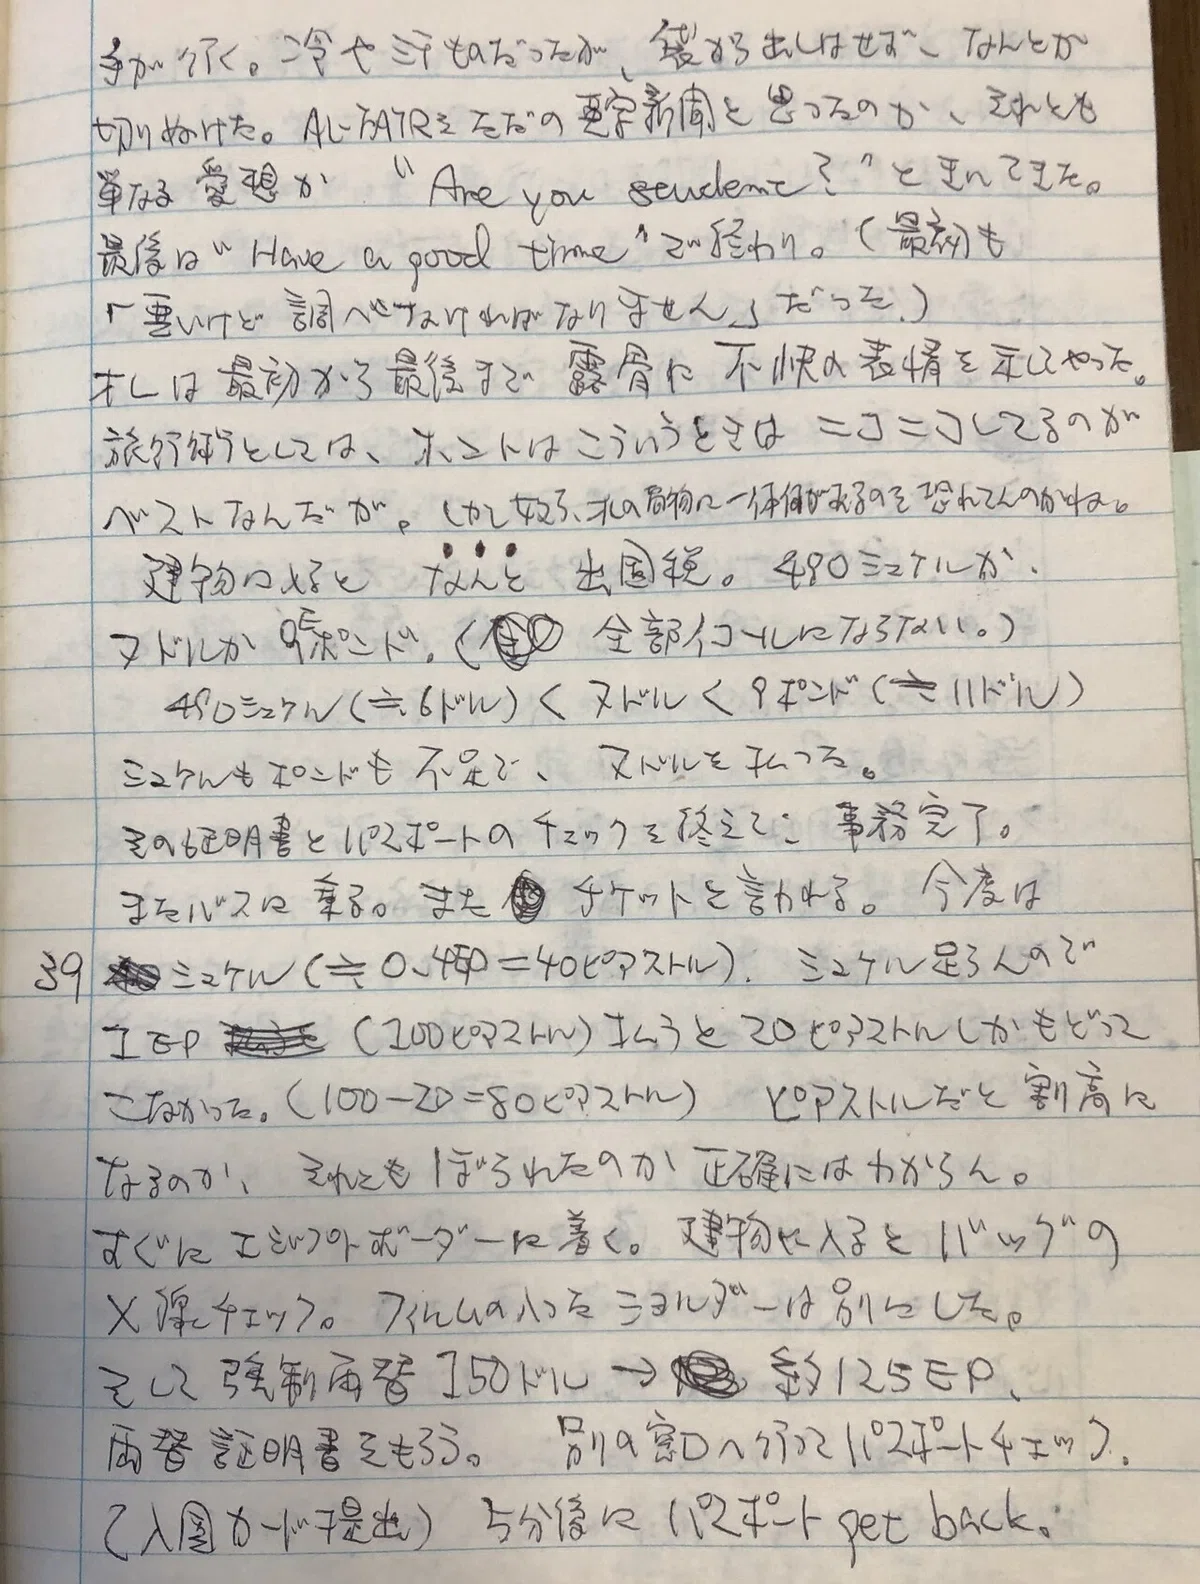 手が行く。冷や汗ものだったが、袋から出しはせず、なんとか
切りぬけた。AL-FATRをただの 新聞と思ったのか、それとも
単なる愛想か "Are you student?"ときいてきた。
最後は"Have a good time"で終わり。(最初も
「悪いけど調べなければなりません」だった。)
オレは最初から最後まで露骨に不快の表情を示してやった。
旅行術としては、ホントはこういうときはニコニコしてるのが
ベストなんだが。しかし奴ら、オレの荷物に一体何があるのを恐れてんのかね。
建物に入ると なんと 出国税。490ミュケルか、
ヌドルか9ポンド。( 全部イコールにならない。)
490ミュケル(≒6ドル)<ヌドル<9ポンド(≒11ドル)
ミュケルもポンドも不足で、ヌドルを払った。
その証明書とパスポートのチェックを終えて、事務完了。
またバスに乗る。また チケットと言われる。今度は
39 ミュケル(≒0.45D=40ピアストル)。ミュケル足らんので
1EP (100ピアストル)払うと20ピアストルしかもどって
こなかった。(100-20=80ピアストル) ピアストルだと割高に
なるのか、それともぼられたのか正確にはわからん。
すぐにエジプトボーダーに着く。建物に入るとバッグの
X線チェック。フィルムの入ったショルダーは別にした。
そして強制両替150ドル→ 約125EP、
両替証明書をもらう。別の窓口へ行ってパスポートチェック。
(入国カード提出) 5分後にパスポートget back.